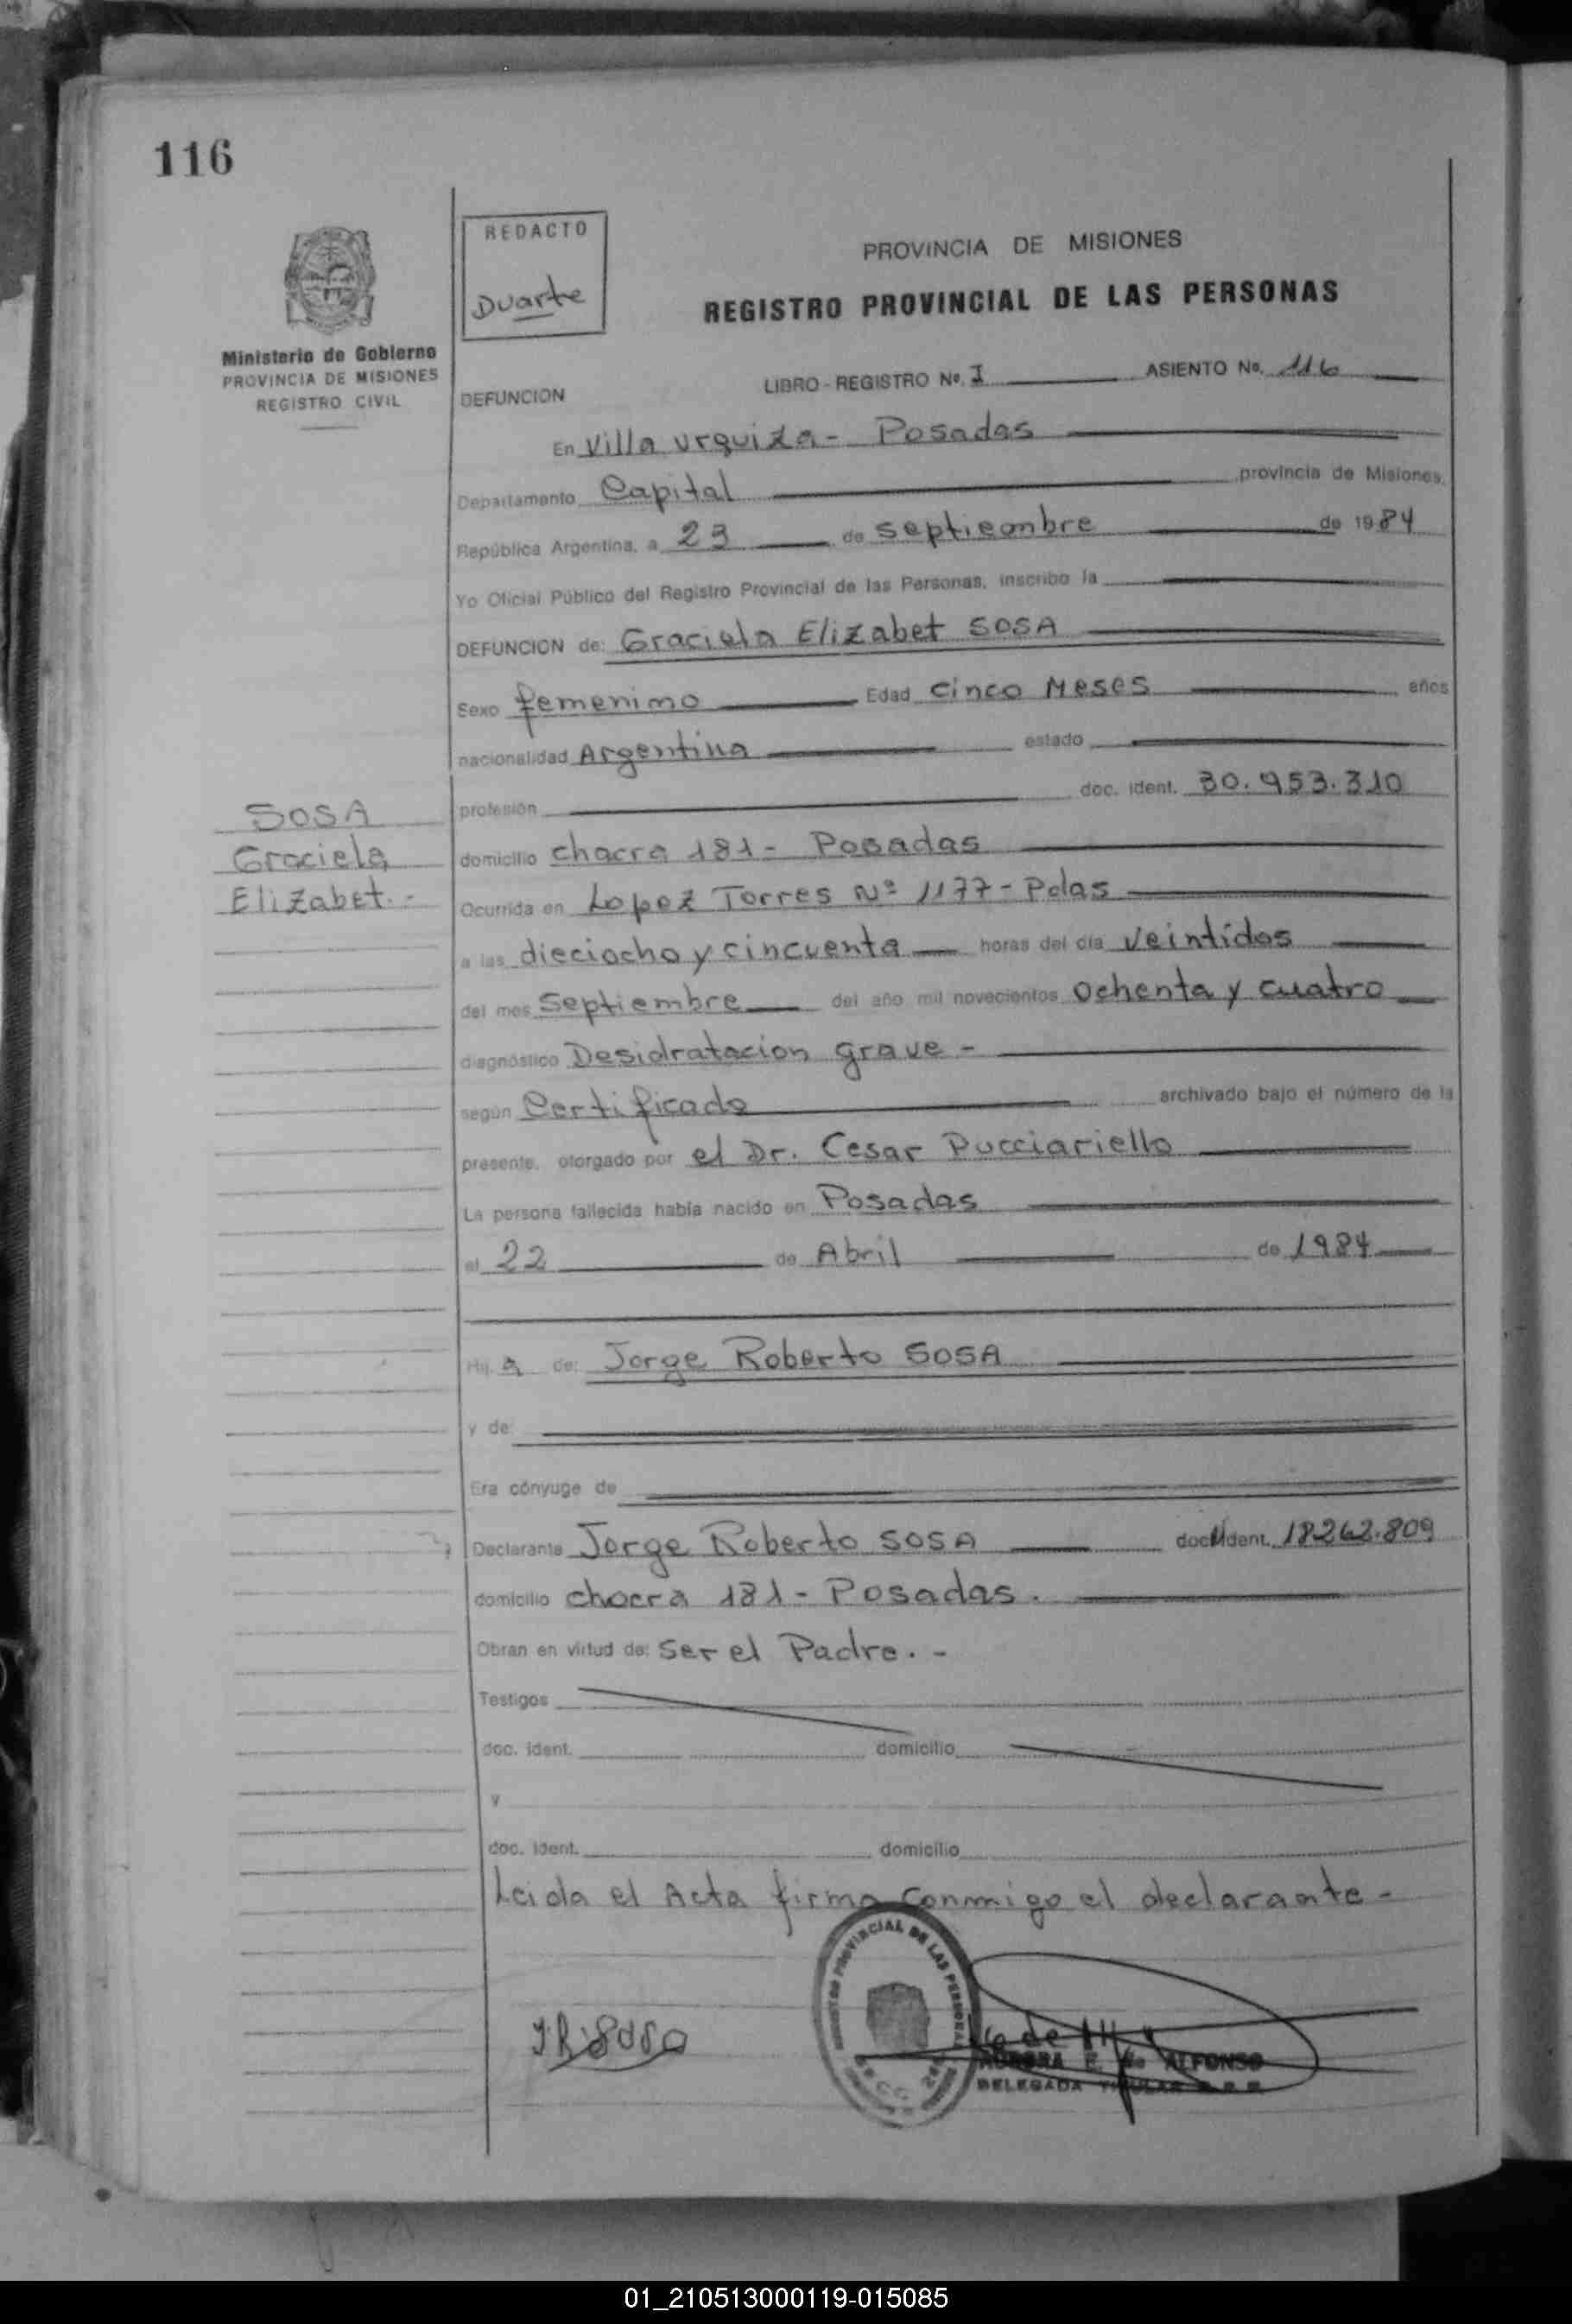 116
REDACTO
Duarte
PROVINCIA DE MISIONES
REGISTRO PROVINCIAL DE LAS PERSONAS
Ministerio de Gobierno
PROVINCIA DE MISIONES
REGISTRO CIVIL
LIBRO - REGISTRO Nº. I ASIENTO No. 116
DEFUNCION
En Villa Urquiza - Posadas
Departamento Capital provincia de Misiones,
República Argentina, a 23 de Septiembre de 1984
Yo Oficial Público del Registro Provincial de las Personas, inscribo la
DEFUNCION de: Graciela Elizabet SOSA
Sexo femenino Edad cinco Meses años
nacionalidad Argentina estado
profesión doc. ident. 30.953.310
SOSA
Graciela
Elizabet.-
domicilio chacra 181 - Posadas
Ocurrida en Lopez Torres Nº 1177 - Pdas
a las dieciocho y cincuenta horas del día Veintidos
del mes Septiembre del año mil novecientos Ochenta y cuatro
diagnóstico Desidratacion grave -
según Certificado archivado bajo el número de la
presente, otorgado por el Dr. Cesar Pucciariello
La persona fallecida había nacido en Posadas
el 22 de Abril de 1984
Hij a de: Jorge Roberto SOSA
y de
Era cónyuge de
Declarante Jorge Roberto SOSA doc. ident. 18262.809
domicilio chacra 181 - Posadas.
Obran en virtud de: Ser el Padre. -
Testigos
doc. ident. domicilio
y
doc. ident. domicilio
Leida el Acta firma conmigo el declarante -
REGISTRO PROVINCIAL DE LAS PERSONAS
JRSosa
AURORA E. de ALFONSO
DELEGADA TITULAR
01_210513000119-015085